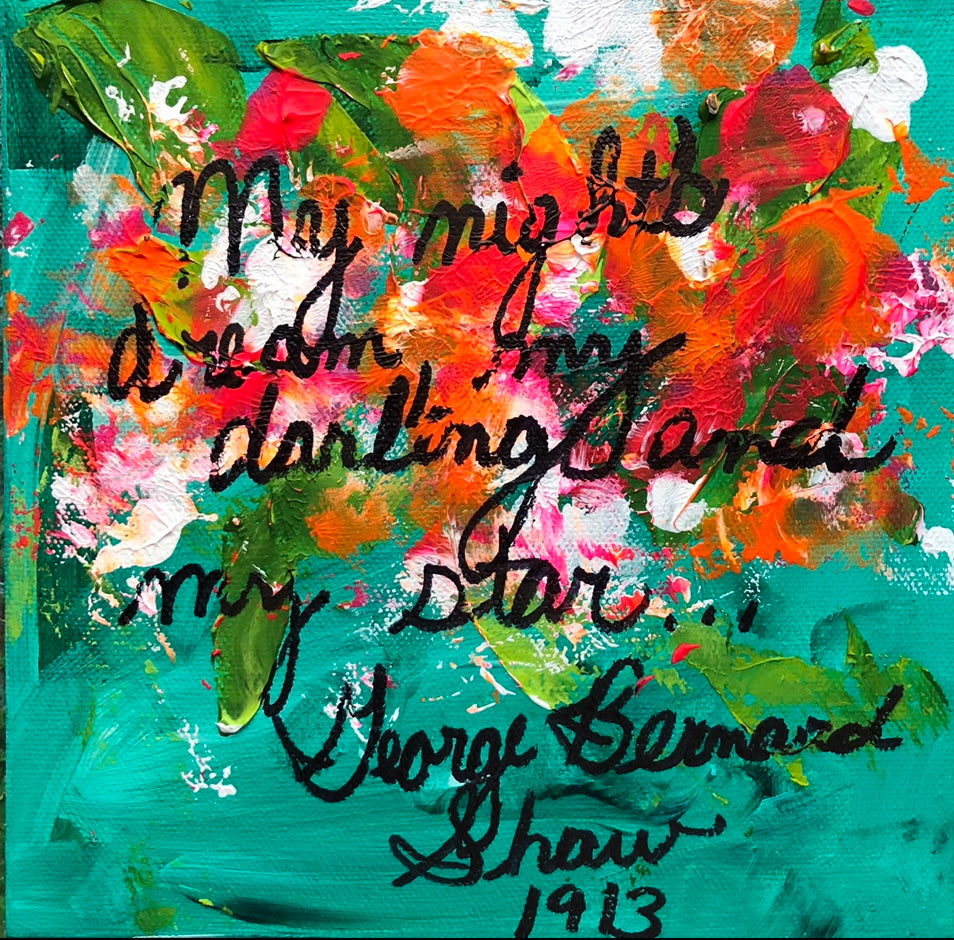 My night's
dream, my
darling and
my star...
George Bernard
Shaw
1913